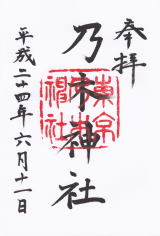 奉拝
乃木神社
平成二十四年六月十一日
東京
神社